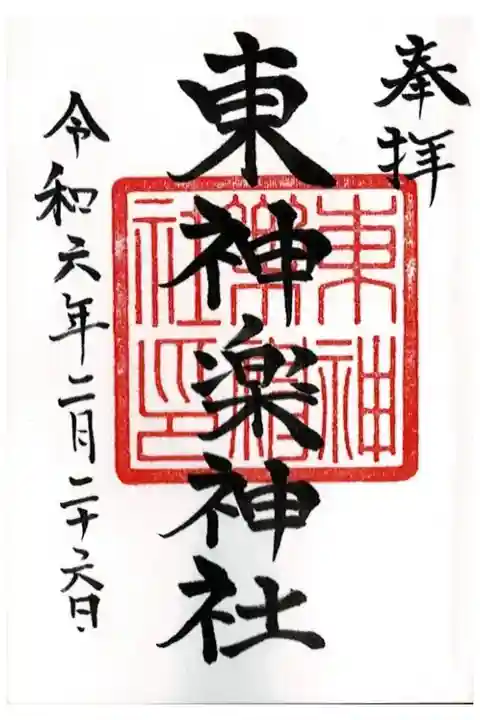 奉拝
東神楽神社
東神
楽神
社印
令和六年二月二十六日